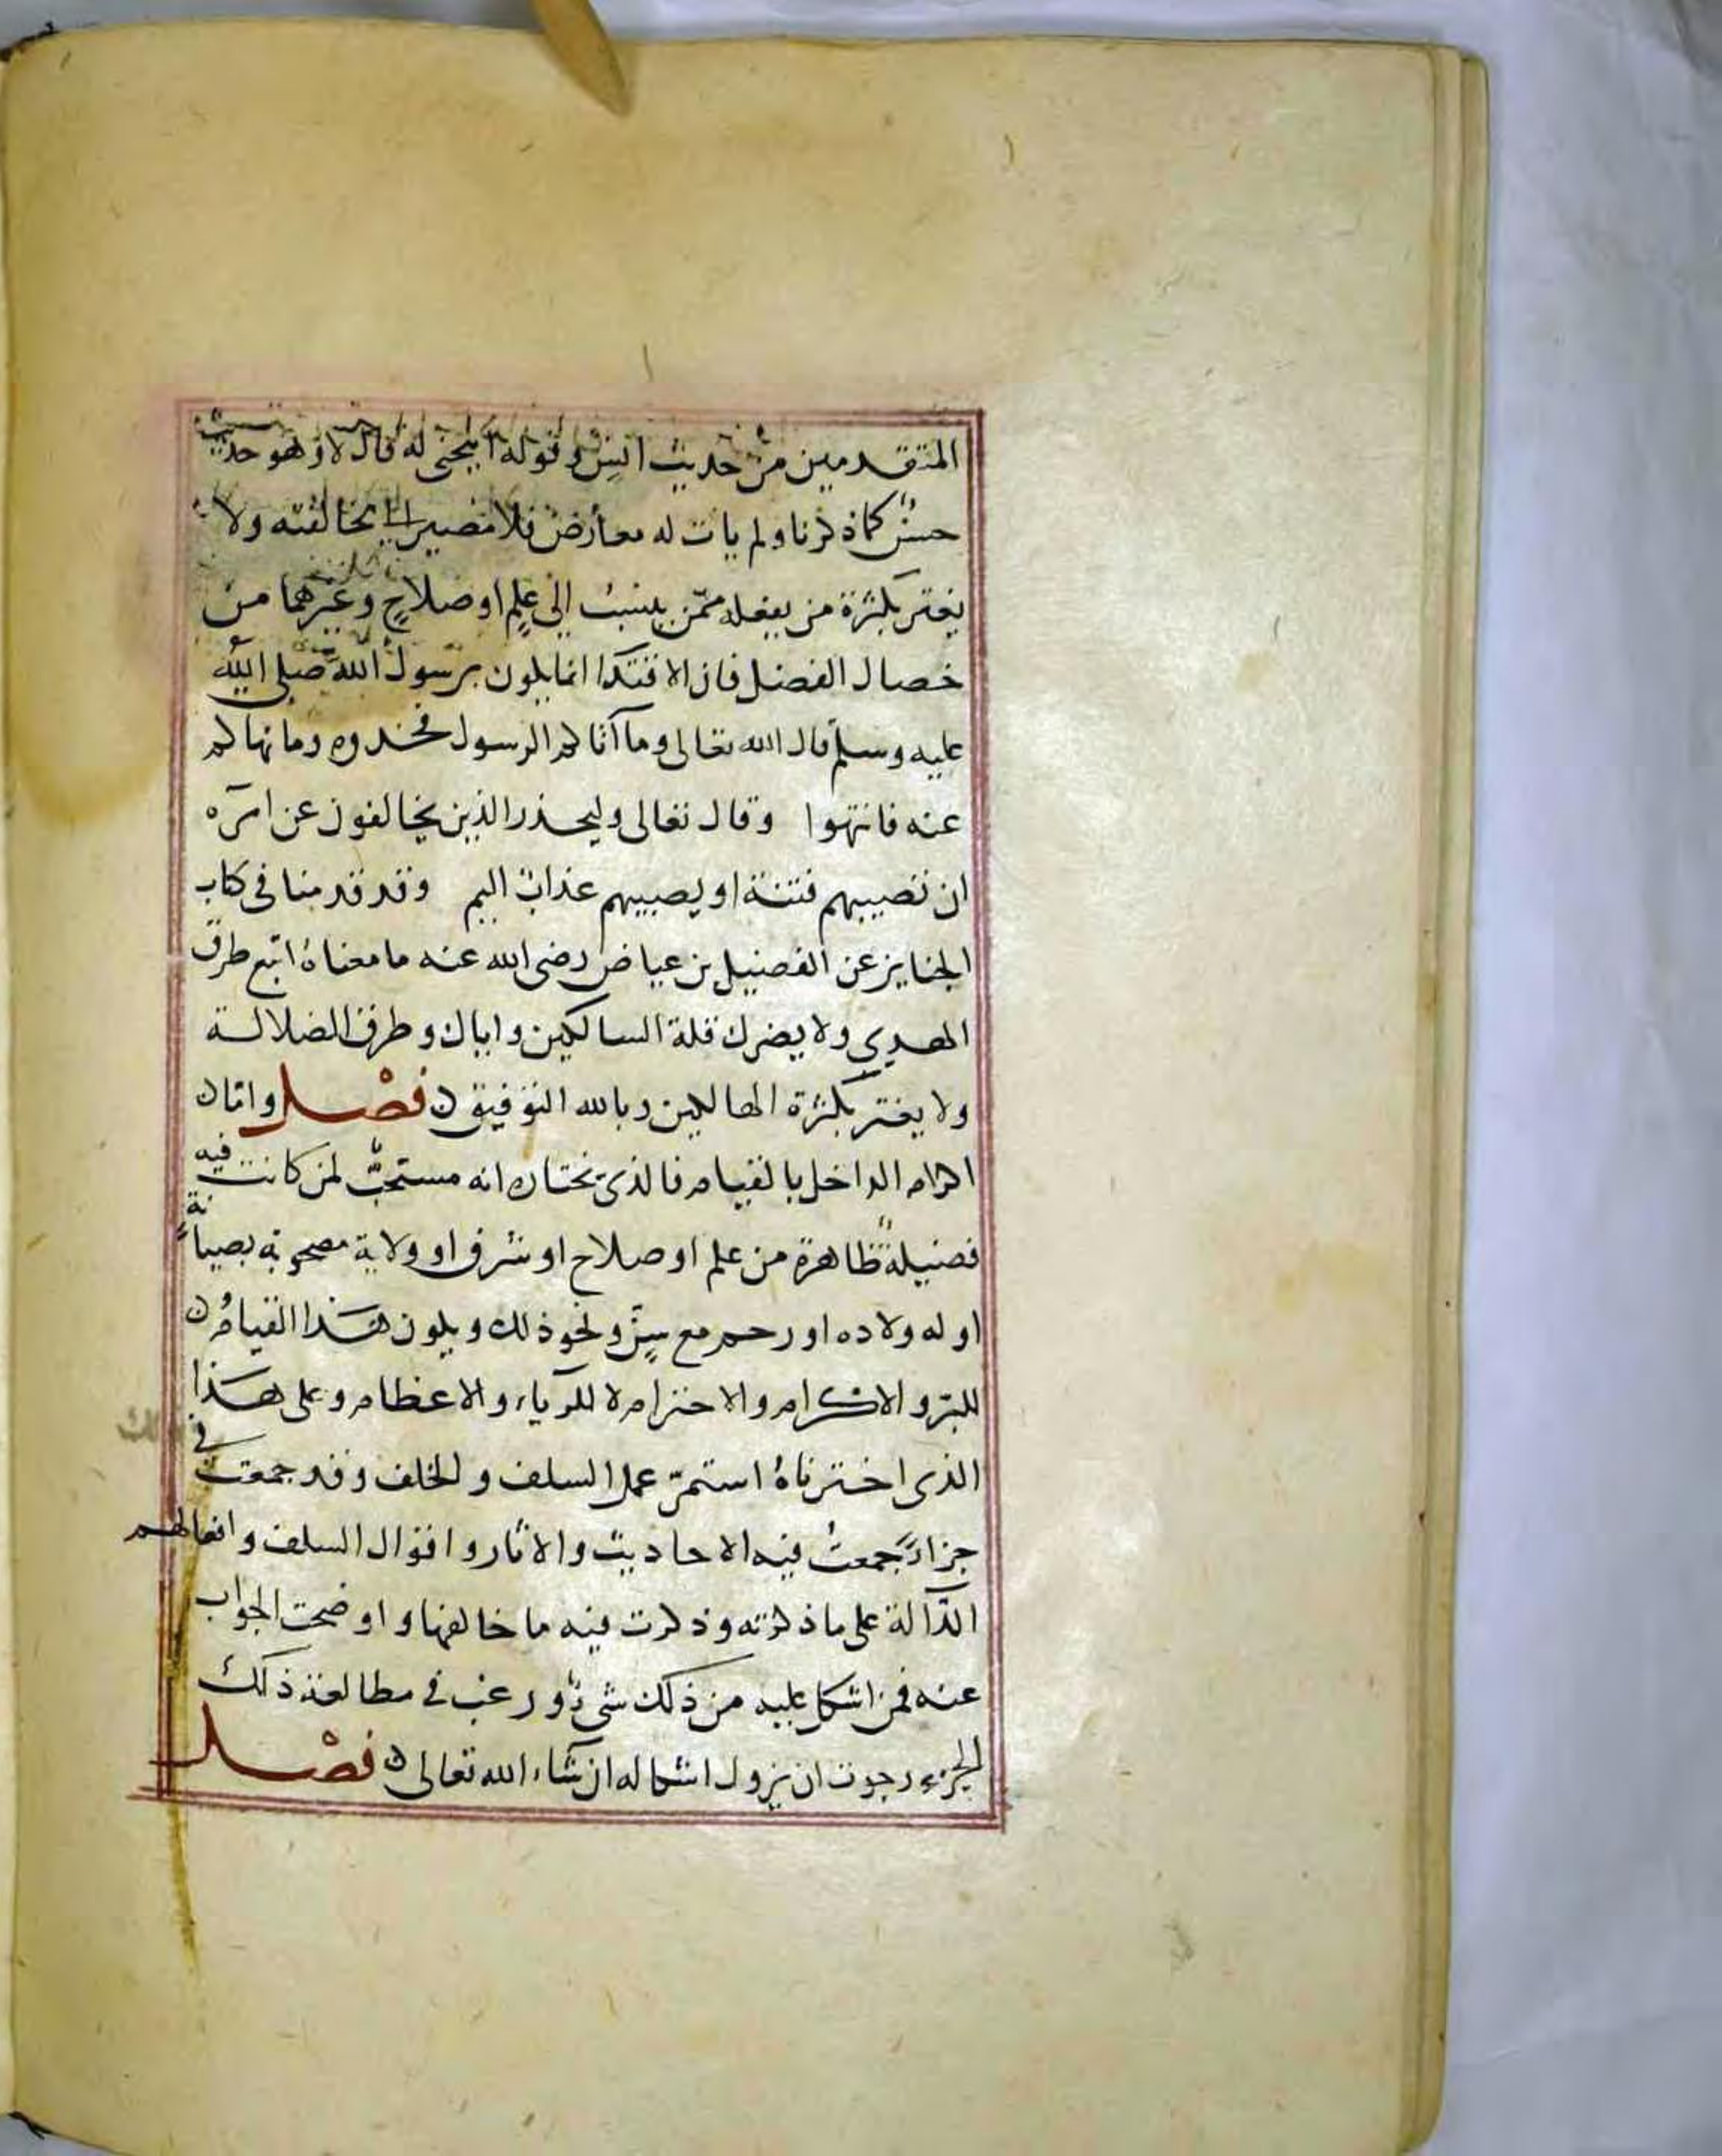 المتقدمين من حديث انس وقوله أينحنى له قال لا وهو حديث
حسن كما ذكرنا ولم يات له معارض فلا مصير الى مخالفته ولا
يغتر بكثرة من يفعله ممّن ينسب الى علمٍ او صلاحٍ وغيرهما من
خصال الفضل فان الاقتدا انما يكون برسول الله صلى الله
عليه وسلم قال الله تعالى وما آتاكم الرسول فخذوه وما نهاكم
عنه فانتهوا وقال تعالى وليحذر الذين يخالفون عن امره
ان تصيبهم فتنة او يصيبهم عذاب اليم وقد قدمنا فى كتاب
الجنايز عن الفضيل بن عياض رضى الله عنه ما معناه اتبع طرق
الهدي ولا يضرك قلة السالكين واياك وطرق الضلالة
ولا يغتر بكثرة الهالكين وبالله التوفيق فصْل واما
اكرام الداخل بالقيام فالذى نختاره انه مستحبٌّ لمن كانت فيه
فضيلة ظاهرة من علم او صلاح او شرف او ولاية مصحوبة بصيانةٍ
او له ولاده او رحم مع سنٍّ ونحو ذلك ويكون هذا القيامُ
للبرّ والاكرام والاحترام لا للرياء والاعظام وعلى هذا
الذى اخترناهُ استمرّ عمل السلف والخلف وقد جمعت في
جزاءً جمعتُ فيه الاحاديث والاثار واقوال السلف وافعالهم
الدّالة على ما ذكرته وذكرت فيه ما خالفها واوضحت الجواب
عنه فمن اشكل عليه من ذلك شىء ورغب في مطالعة ذلك
الجزء رجوت ان يزول اشكاله ان شاء الله تعالى فصْل